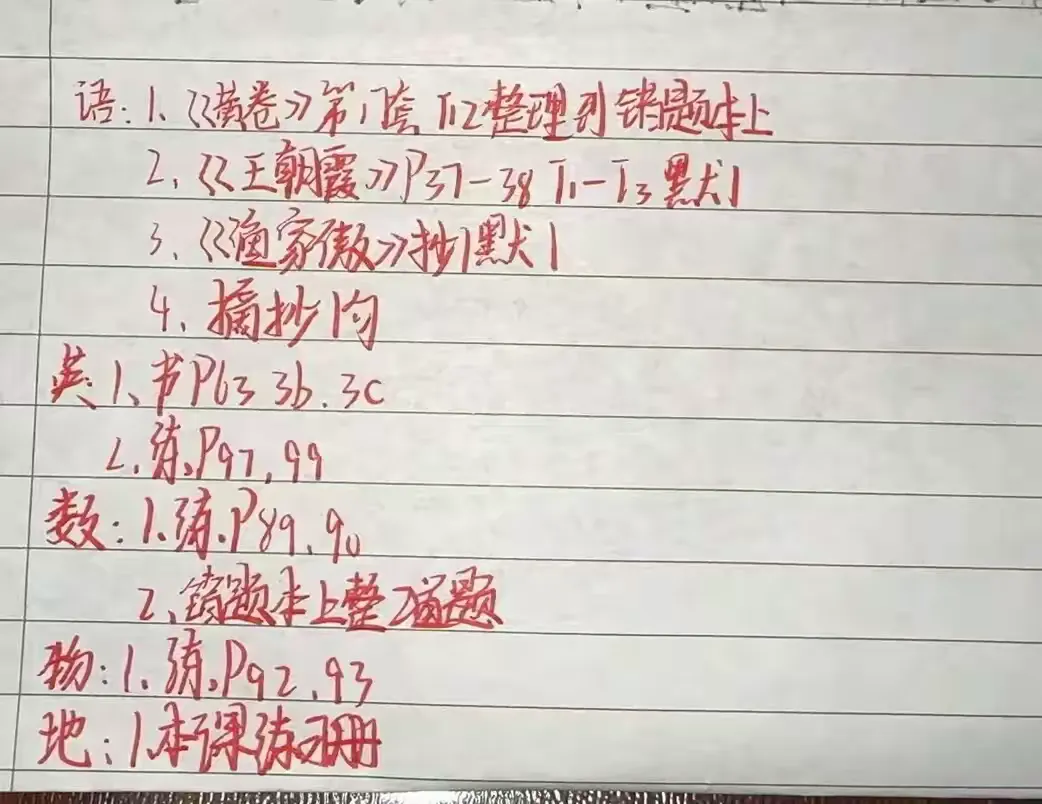 语:1、《黄卷》第1套 T12整理到错题本上
2、《王朝霞》P37-38 T1-T3 默1
3、《渔家傲》抄1默1
4、摘抄1句
英:1、书P63 3b.3c
2.练.P97,99
数:1.练.P89.90
2、错题本上整2道题
物:1.练.P92.93
地:1.本课练习册